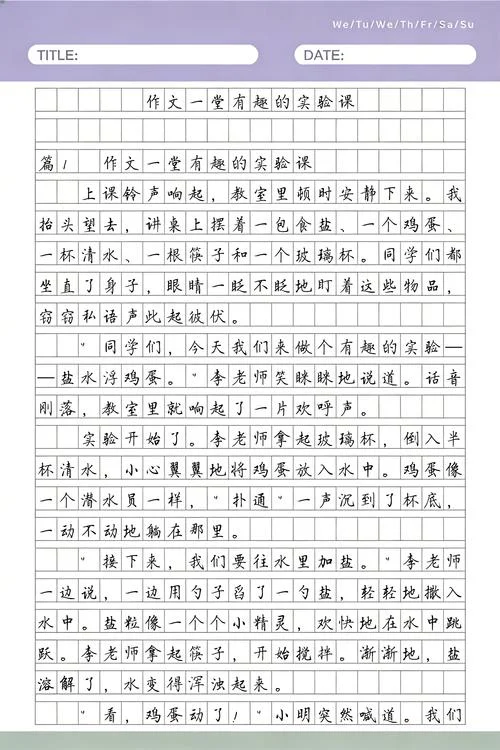 We/Tu/We/Th/Fr/Sa/Su
TITLE: DATE:
作文一堂有趣的实验课
篇1 作文一堂有趣的实验课
上课铃声响起，教室里顿时安静下来。我
抬头望去，讲桌上摆着一包食盐、一个鸡蛋、
一杯清水、一根筷子和一个玻璃杯。同学们都
坐直了身子，眼睛一眨不眨地盯着这些物品，
窃窃私语声此起彼伏。
"同学们，今天我们来做个有趣的实验—
—盐水浮鸡蛋。"李老师笑眯眯地说道。话音
刚落，教室里就响起了一片欢呼声。
实验开始了。李老师拿起玻璃杯，倒入半
杯清水，小心翼翼地将鸡蛋放入水中。鸡蛋像
一个潜水员一样，"扑通"一声沉到了杯底，
一动不动地躺在那里。
"接下来，我们要往水里加盐。"李老师
一边说，一边用勺子舀了一勺盐，轻轻地撒入
水中。盐粒像一个个小精灵，欢快地在水中跳
跃。李老师拿起筷子，开始搅拌。渐渐地，盐
溶解了，水变得浑浊起来。
"看，鸡蛋动了！"小明突然喊道。我们